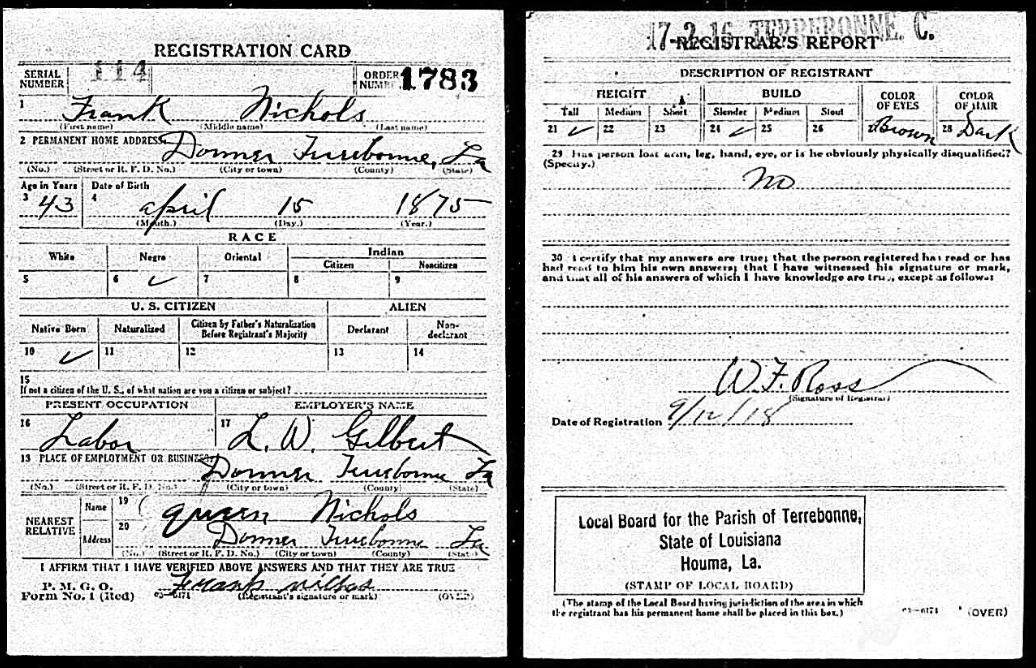 REGISTRATION CARD
SERIAL NUMBER 114 ORDER NUMBER 1783
1 Frank Nichols
(First name) (Middle name) (Last name)
2 PERMANENT HOME ADDRESS: Donner Terrebonne, La
(No.) (Street or R. F. D. No.) (City or town) (County) (State)
Age in Years Date of Birth
3 43 4 april 15 1875
(Month.) (Day.) (Year.)
RACE
White Negro Oriental Indian
Citizen Noncitizen
5 6 ✓ 7 8 9
U. S. CITIZEN ALIEN
Native Born Naturalized Citizen by Father's Naturalization Before Registrant's Majority Declarant Non-declarant
10 ✓ 11 12 13 14
15
If not a citizen of the U. S., of what nation are you a citizen or subject?
PRESENT OCCUPATION EMPLOYER'S NAME
16 Labor 17 L. W. Gilbert
18 PLACE OF EMPLOYMENT OR BUSINESS: Donner Terrebonne La
(No.) (Street or R. F. D. No.) (City or town) (County) (State)
NEAREST RELATIVE Name 19 queen Nichols
Address 20 Donner Terrebonne La
(No.) (Street or R. F. D. No.) (City or town) (County) (State)
I AFFIRM THAT I HAVE VERIFIED ABOVE ANSWERS AND THAT THEY ARE TRUE
P. M. G. O.
Form No. 1 (Red) 03—6171 Frank (Registrant's signature or mark) (OVER)
17-2-16 TERREBONNE. C.
REGISTRAR'S REPORT
DESCRIPTION OF REGISTRANT
HEIGHT BUILD COLOR OF EYES COLOR OF HAIR
Tall Medium Short Slender Medium Stout
21 ✓ 22 23 24 ✓ 25 26 Brown 28 Dark
29 Has person lost arm, leg, hand, eye, or is he obviously physically disqualified?
(Specify.)
no
30 I certify that my answers are true; that the person registered has read or has
had read to him his own answers; that I have witnessed his signature or mark,
and that all of his answers of which I have knowledge are true, except as follows:
W. F. Ross
(Signature of Registrar)
Date of Registration 9/12/18
Local Board for the Parish of Terrebonne,
State of Louisiana
Houma, La.
(STAMP OF LOCAL BOARD)
(The stamp of the Local Board having jurisdiction of the area in which
the registrant has his permanent home shall be placed in this box.)
03—6171 (OVER)